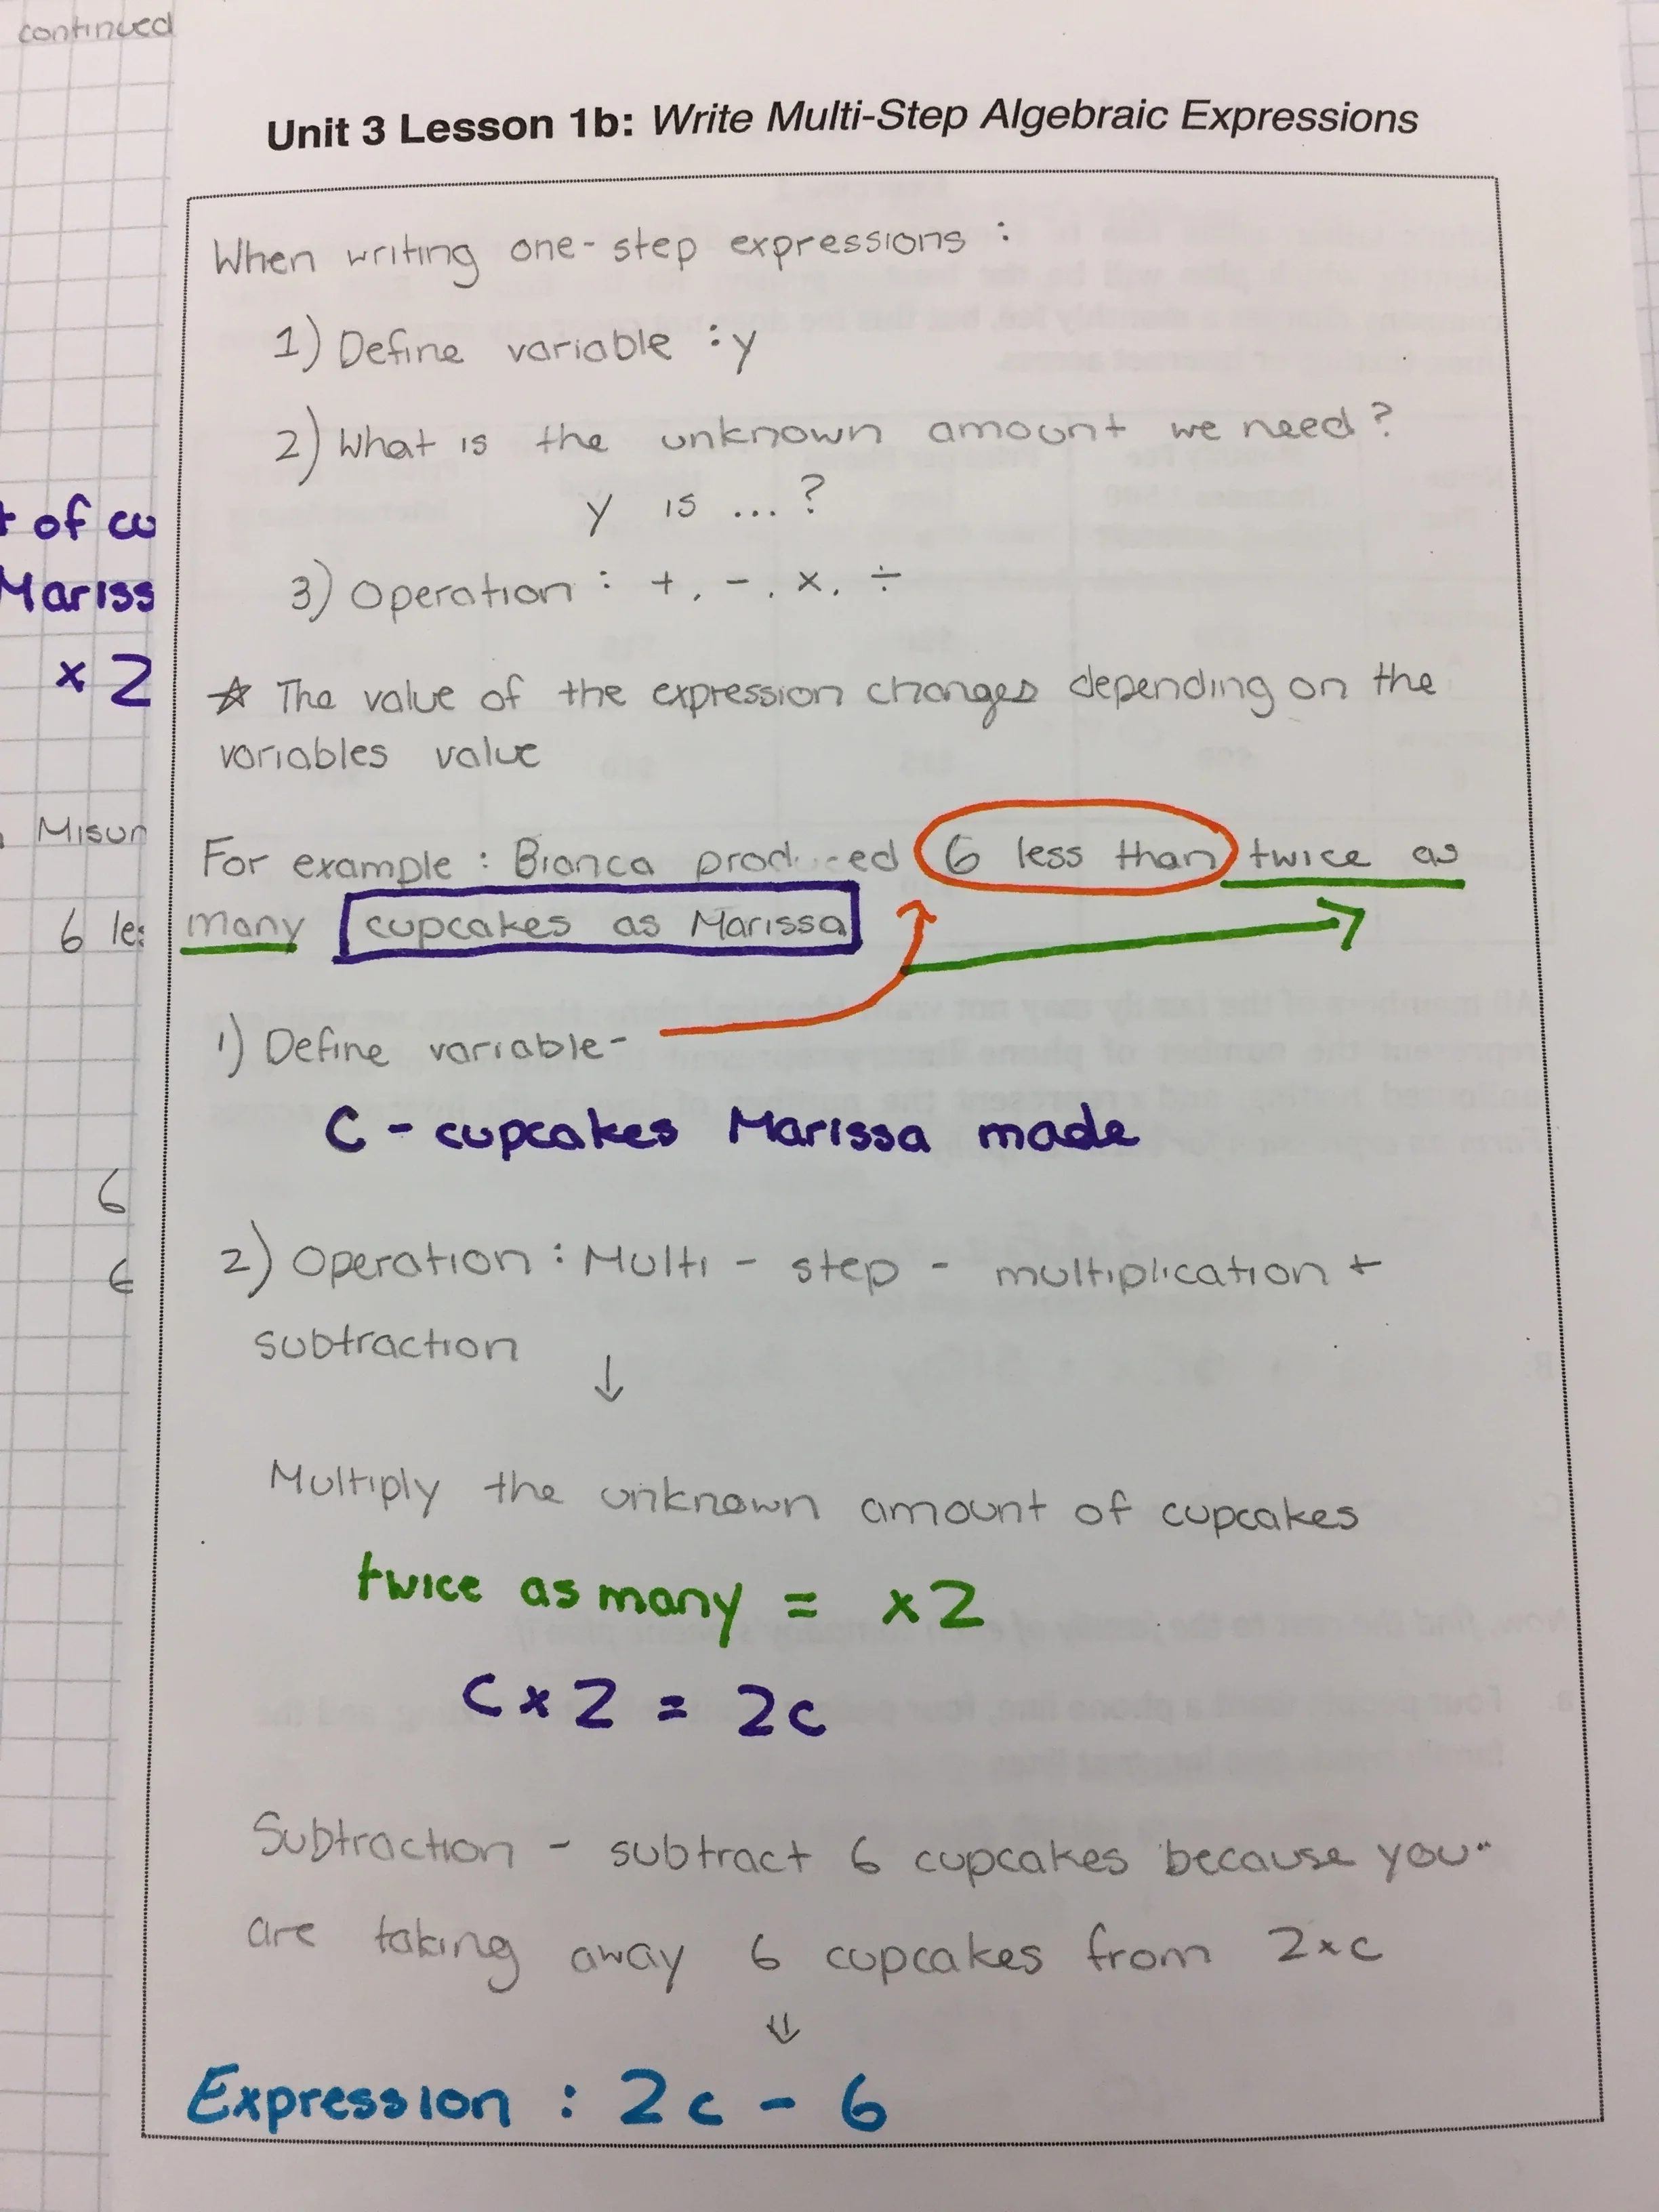 continued
Unit 3 Lesson 1b: Write Multi-Step Algebraic Expressions
When writing one-step expressions :
1) Define variable : y
2) What is the unknown amount we need?
y is ... ?
3) Operation : +, -, x, ÷
☆ The value of the expression changes depending on the
variables value
For example : Bianca produced 6 less than twice as
many cupcakes as Marissa
1) Define variable-
C - cupcakes Marissa made
2) Operation : Multi - step - multiplication +
subtraction
↓
Multiply the unknown amount of cupcakes
twice as many = x2
C x 2 = 2c
Subtraction - subtract 6 cupcakes because you
are taking away 6 cupcakes from 2xc
⇓
Expression : 2c - 6
of
x 2
6
6